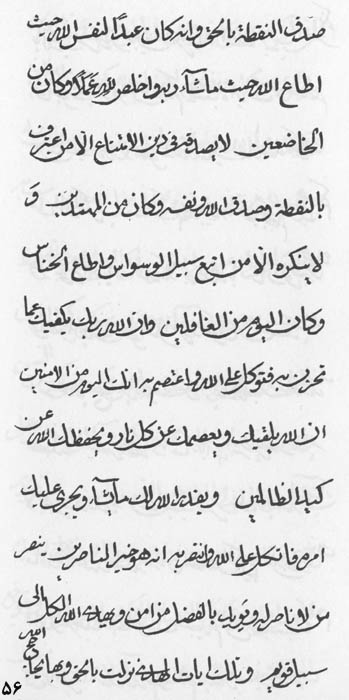 صدق النقطة بالحق وانه كان عبداً لنفس الله حيث
اطاع الله حيث ماشآء ربه واخلص لله عملاً وكان من
الخاضعين لا يصدقه في دين الامتناع الا من اعترف
بالنقطة وصدق الله ونفسه وكان من المهتدين و
لا ينكره الا من اتبع سبيل الوسواس واطاع الخناس
وكان اليوم من الغافلين وان الله ربك يكفيك عما
تحزن به فتوكل على الله واعتصم به انك اليوم من الامنين
ان الله يلقيك ويعصمك عن كل نار ويحفظك الله عن
كيد الظالمين ويفعل الله لك مايشآء ويجري عليك
امره فاتكل على الله وانتصر به انه هو خير الناصرين ينصر
من لا ناصر له ويؤيد بالفضل من امن ويهدي الله الكل الى
سبيل قويم وتلك ايات الهدى نزلت بالحق وبها
۵۶